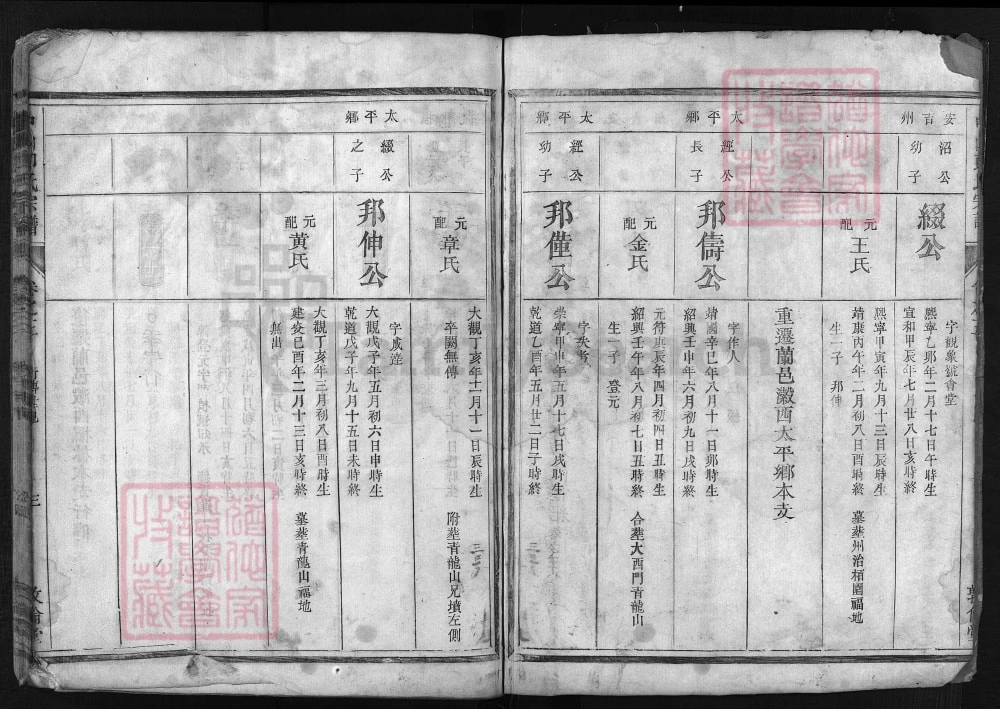 安吉州
沼公
幼子
綴公
字觀衆號會堂
熙寧乙卯年二月十七日午時生
宣和甲辰年七月廿八日亥時終
元配王氏
熙寧甲寅年九月十三日辰時生
靖康丙午年二月初八日酉時終
墓塟州治栢園福地
生一子 邦伸
重遷蘭邑瀫西太平鄉本支
太平鄉
經公
長子
邦儔公
字作人
靖國辛巳年八月十一日卯時生
紹興壬申年六月初九日戌時終
元配金氏
元符庚辰年四月初四日丑時生
紹興壬午年八月初七日丑時終
合塟大西門青龍山
生一子 登元
太平鄉
經公
幼子
邦僅公
崇寧甲申年五月十七日戌時生
乾道乙酉年五月廿二日子時終
元配章氏
大觀丁亥年十二月十一日辰時生
卒闕無傳
附塟青龍山兄墳左側
太平鄉
綴公
之子
邦伸公
字成達
大觀戊子年五月初六日申時生
乾道戊子年九月十五日未時終
元配黃氏
大觀丁亥年三月初八日酉時生
建炎己酉年二月十三日亥時終
墓塟青龍山福地
無出